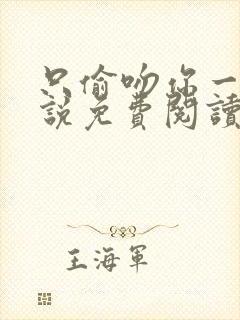 只偷吻你一
說免費閱讀
王海軍